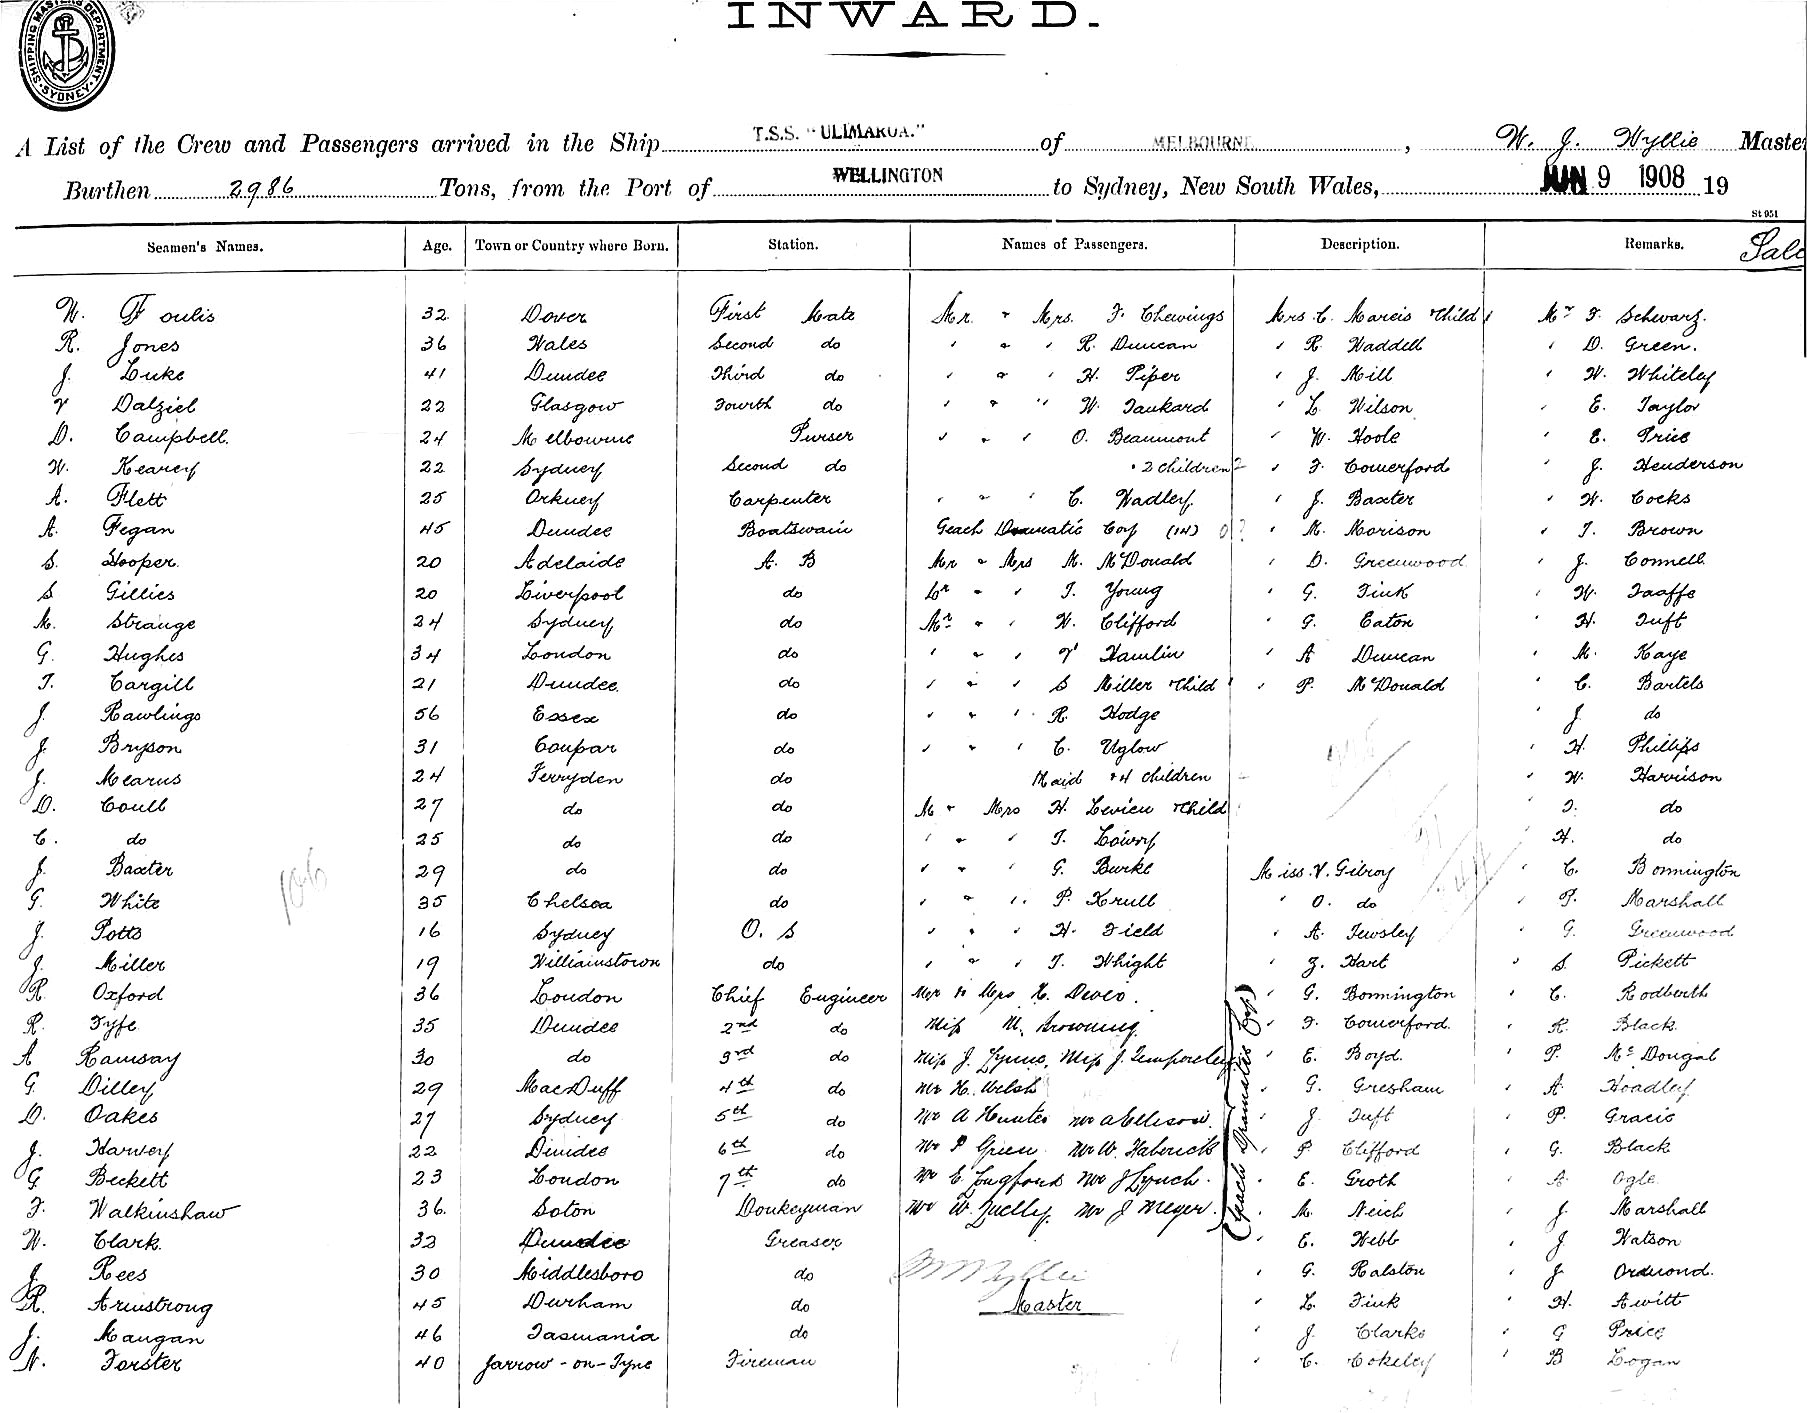 INWARD.
SHIPPING MASTERS DEPARTMENT SYDNEY
A List of the Crew and Passengers arrived in the Ship T.S.S. "ULIMAROA." of MELBOURNE, W. J. Wyllie Master
Burthen 2986 Tons, from the Port of WELLINGTON to Sydney, New South Wales, JUN 9 1908 19
St 951
Seamen's Names. Age. Town or Country where Born. Station. Names of Passengers. Description. Remarks.
W. Foulis 32 Dover First Mate Mr. " Mrs. F. Chewings Mrs. C. Mareis + Child Mr F. Schwarz.
R. Jones 36 Wales Second do " " " R. Duncan " R. Waddell " D. Green.
J. Luke 41 Dundee Third do " " " H. Piper " J. Mill " W. Whiteley
V Dalziel 22 Glasgow Fourth do " " " W. Tankard " L. Wilson " E. Taylor
D. Campbell. 24 Melbourne Purser " " " O. Beaumont " W. Hoole " E. Price
W. Kearey 22 Sydney Second do " 2 children 2 " F. Comerford " J. Henderson
A. Flett 25 Orkney Carpenter " " " C. Wadley. " J. Baxter " W. Cocks
A. Fegan 45 Dundee Boatswain Geach Dramatic Coy (14) " M. Morison " T. Brown
S. Hooper. 20 Adelaide A. B Mr " Mrs M. McDonald " D. Greenwood " J. Connell
S Gillies 20 Liverpool do Dr " " T. Young " G. Fink " W. Taaffe
M. Strange 24 Sydney do Mr " " W. Clifford " G. Eaton " H. Tuft
G. Hughes 34 London do " " " V Hamlin " A Duncan " M. Kaye
T. Cargill 21 Dundee. do " " " S Miller + Child " P. McDonald " C. Bartels
J. Rawlings 56 Essex do " " " R. Hodge " J. do
J. Bryson 31 Coupar do " " " C. Uglow " H. Phillips
J. Mearns 24 Ferryden do Maid + 4 children " W. Harrison
D. Coull 27 do do Mr " Mrs H. Levien + Child " T. do
C. do 25 do do " " " T. Lowry " H. do
J. Baxter 29 do do " " " G. Burke Miss. V. Gilroy " C. Bonnington
G. White 35 Chelsea do " " " P. Krull " O. do " T. Marshall
J. Potts 16 Sydney O. S " " " H. Field " A. Tewsley " G. Greenwood
J. Miller 19 Williamstown do " " " T. Whight " Z. Hart " S. Pickett
R. Oxford 36 London Chief Engineer Mr & Mrs " G. Bonnington " C. Rodberth
R. Fyfe 35 Dundee 2nd do Miss M. Browning " F. Comerford. " R. Black.
A Ramsay 30 do 3rd do Miss J. Lynne, Miss J. Temporeley " E. Boyd. " P. McDougal
G. Dilley 29 MacDuff 4th do Mr H. Welsh " G. Gresham " A. Hoadley
D. Oakes 27 Sydney 5th do Mr A Hunter Mr A Ellison. " J. Tuft " P. Gracie
J. Harvey 22 Dundee 6th do Mr P Green Mr W. Haberick " P. Clifford " G. Black
G Beckett 23 London 7th do Mr E. Mr J Lynch. " E. Groth " A. Ogle
F. Walkinshaw 36. Soton Donkeyman Mr W. Mr J Meyer. " M. Neich " J. Marshall
(Geach Dramatic Coy)
W. Clark. 33 Dundee Greaser " E. Webb " J Watson
J. Rees 30 Middlesboro do W Wyllie " G. Ralston " J. Ormond.
R. Armstrong 45 Durham do Master " L. Fink " H. Awitt
J. Maugan 46 Tasmania do " J. Clarke " G Price
N. Forster 40 Jarrow-on-Tyne Fireman " C. Cokeley " B Logan
106